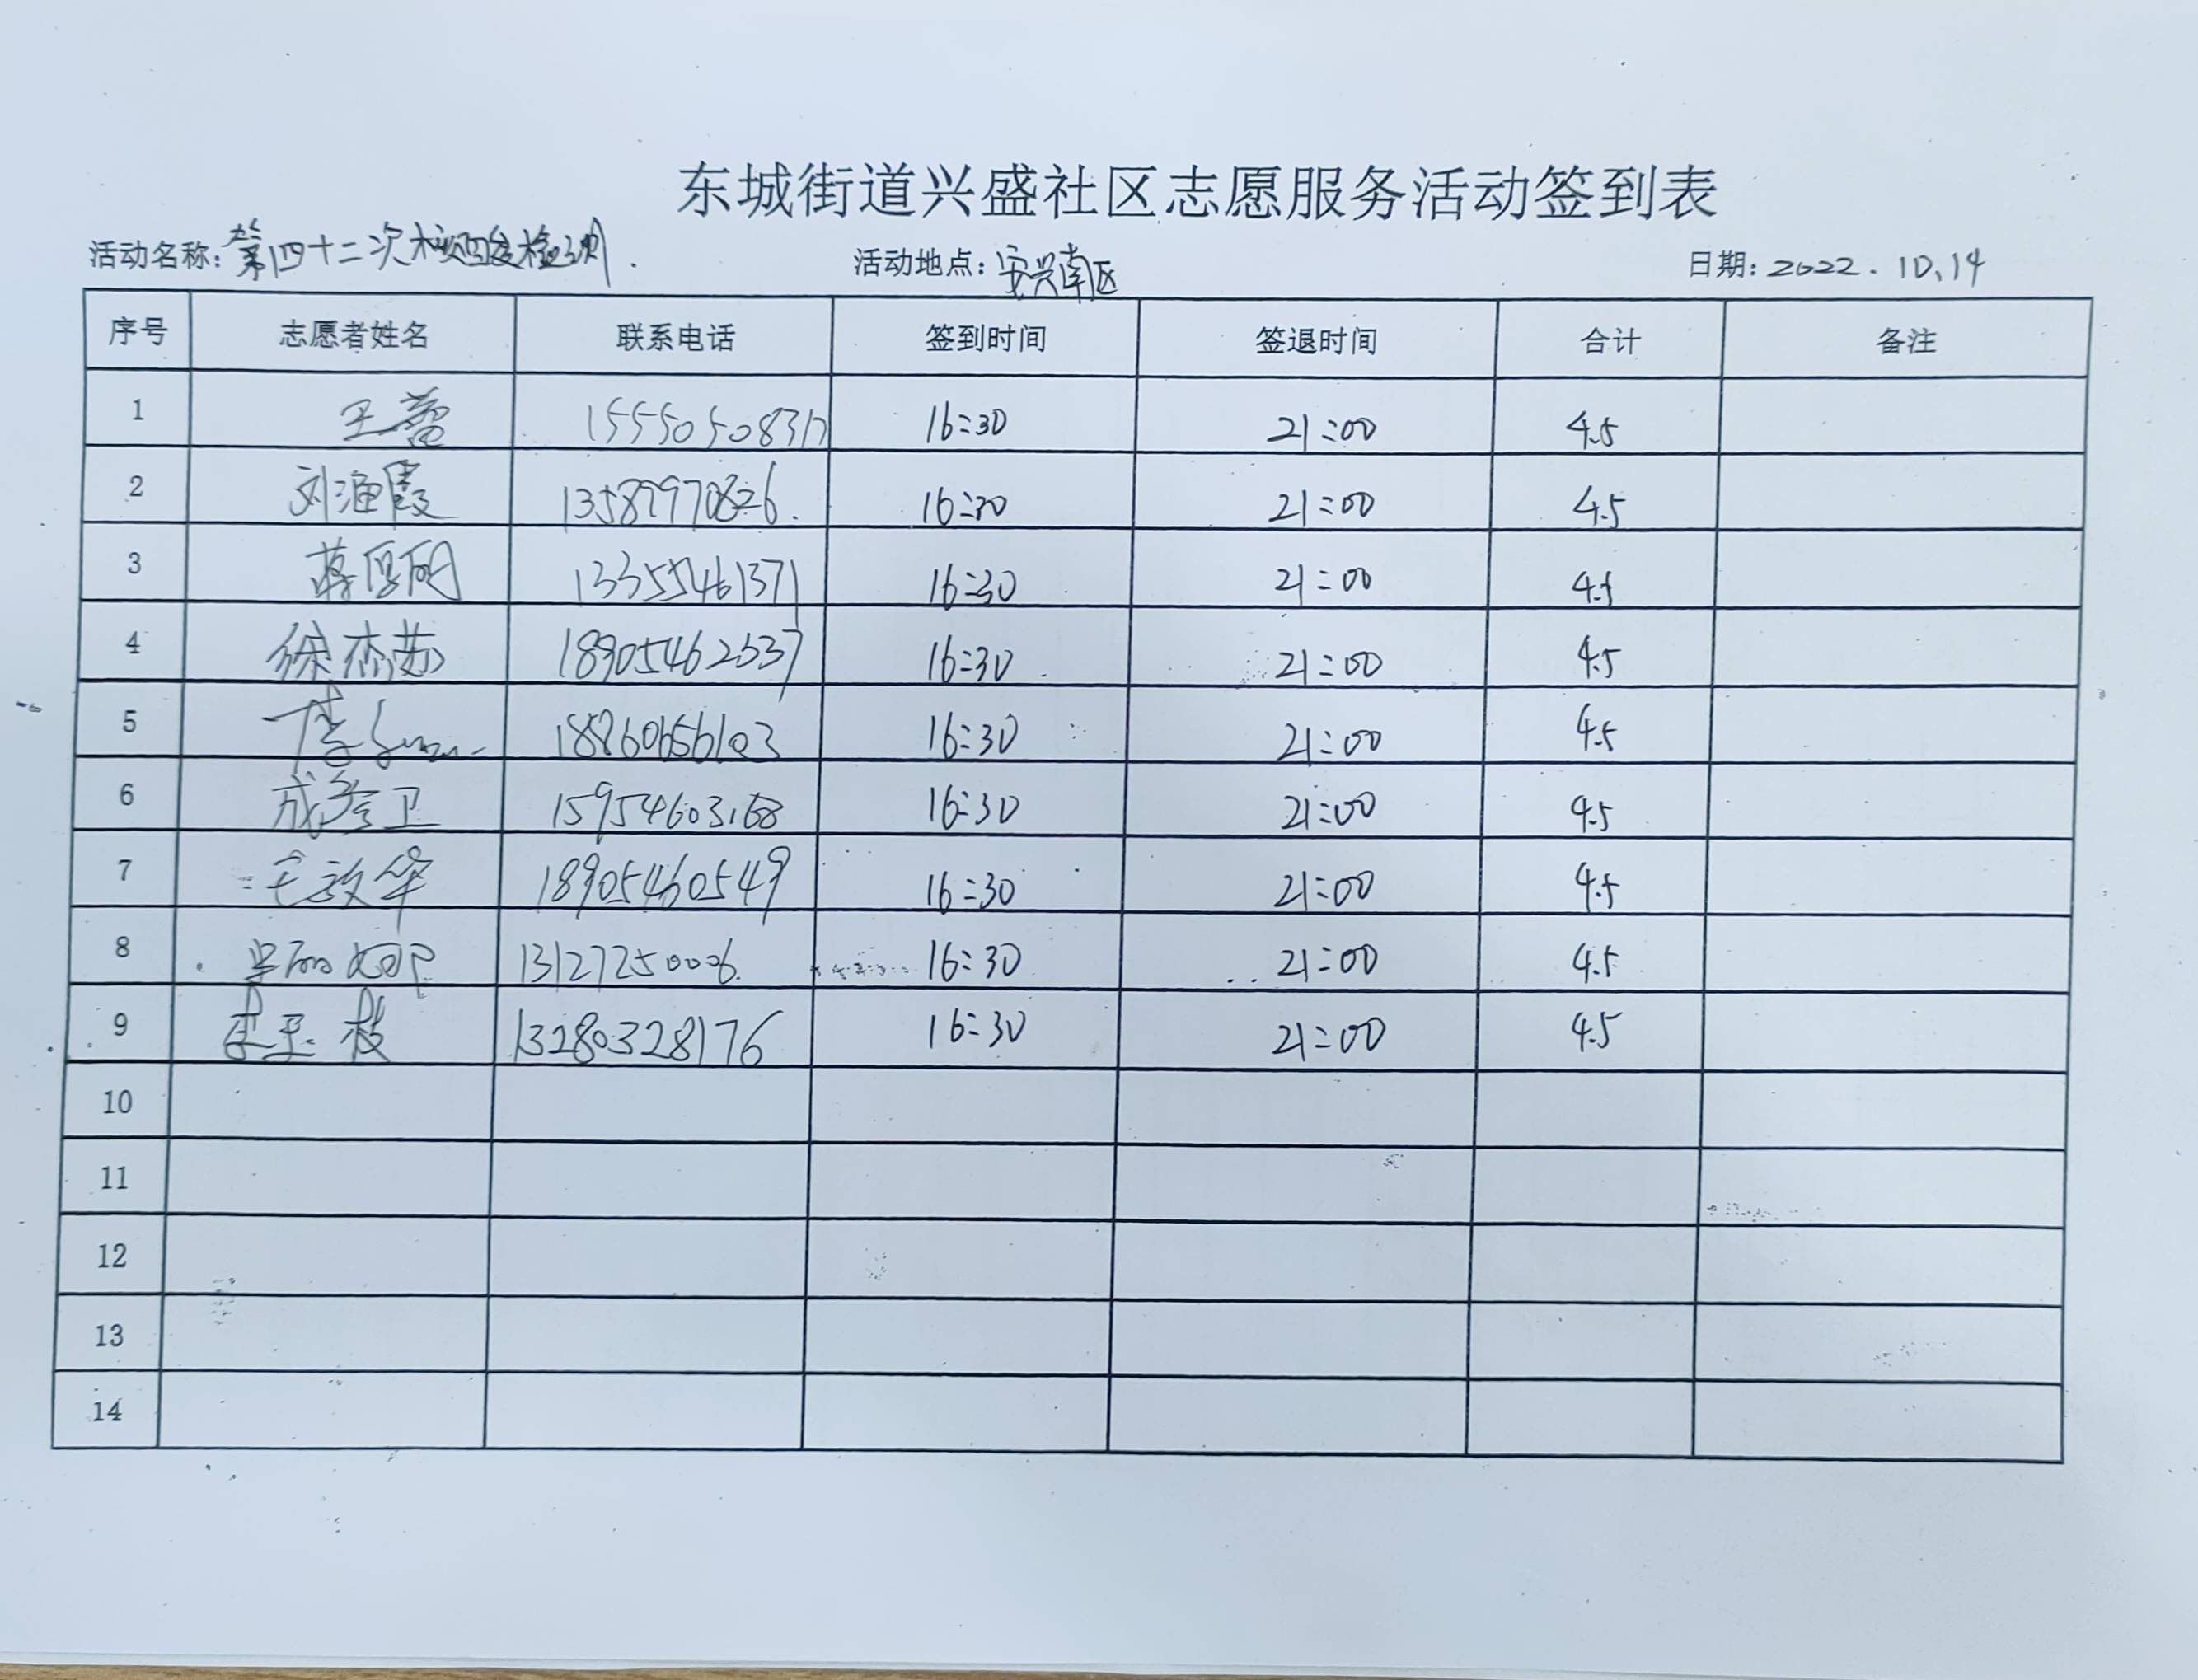 东城街道兴盛社区志愿服务活动签到表
活动名称:第四十二次核酸检测. 活动地点:安兴南区 日期:2022.10.14
序号 志愿者姓名 联系电话 签到时间 签退时间 合计 备注
1 王蕾 15550508317 16:30 21:00 4.5
2 刘海霞 13589970826. 16:30 21:00 4.5
3 13355461371 16:30 21:00 4.5
4 18905462537 16:30 21:00 4.5
5 16:30 21:00 4.5
6 15954603168 16:30 21:00 4.5
7 王效华 18905460549 16:30 21:00 4.5
8 13127250006. 16:30 21:00 4.5
9 李玉枝 13280328176 16:30 21:00 4.5
10
11
12
13
14